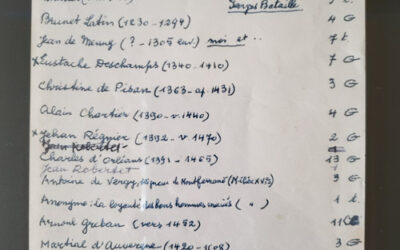 Temps Bataille
Brunet Latin (1230-1294) 4 G
Jean de Meung (? - 1305 env.) moi et .. 7 t
x Eustache Deschamps (1340-1410) 7 G
Christine de Pisan (1363-ap. 1431) 3 G
Alain Chartier (1390-v. 1440) 4 G
x Jehan Régnier (1392-v 1470) 2 G
Jean Robertet
Charles d'Orléans (1391-1465) 13 G
Jean Robertet 1
Antoine de Vergy, seigneur de Montferrant (Milieu XVe) 3 G
Anonyme : la loyauté des hommes mariés ( " ) 1 t.
Arnoul Greban (vers 1452) 11 G
Martial d'Auvergne (1420-1508) 3 G